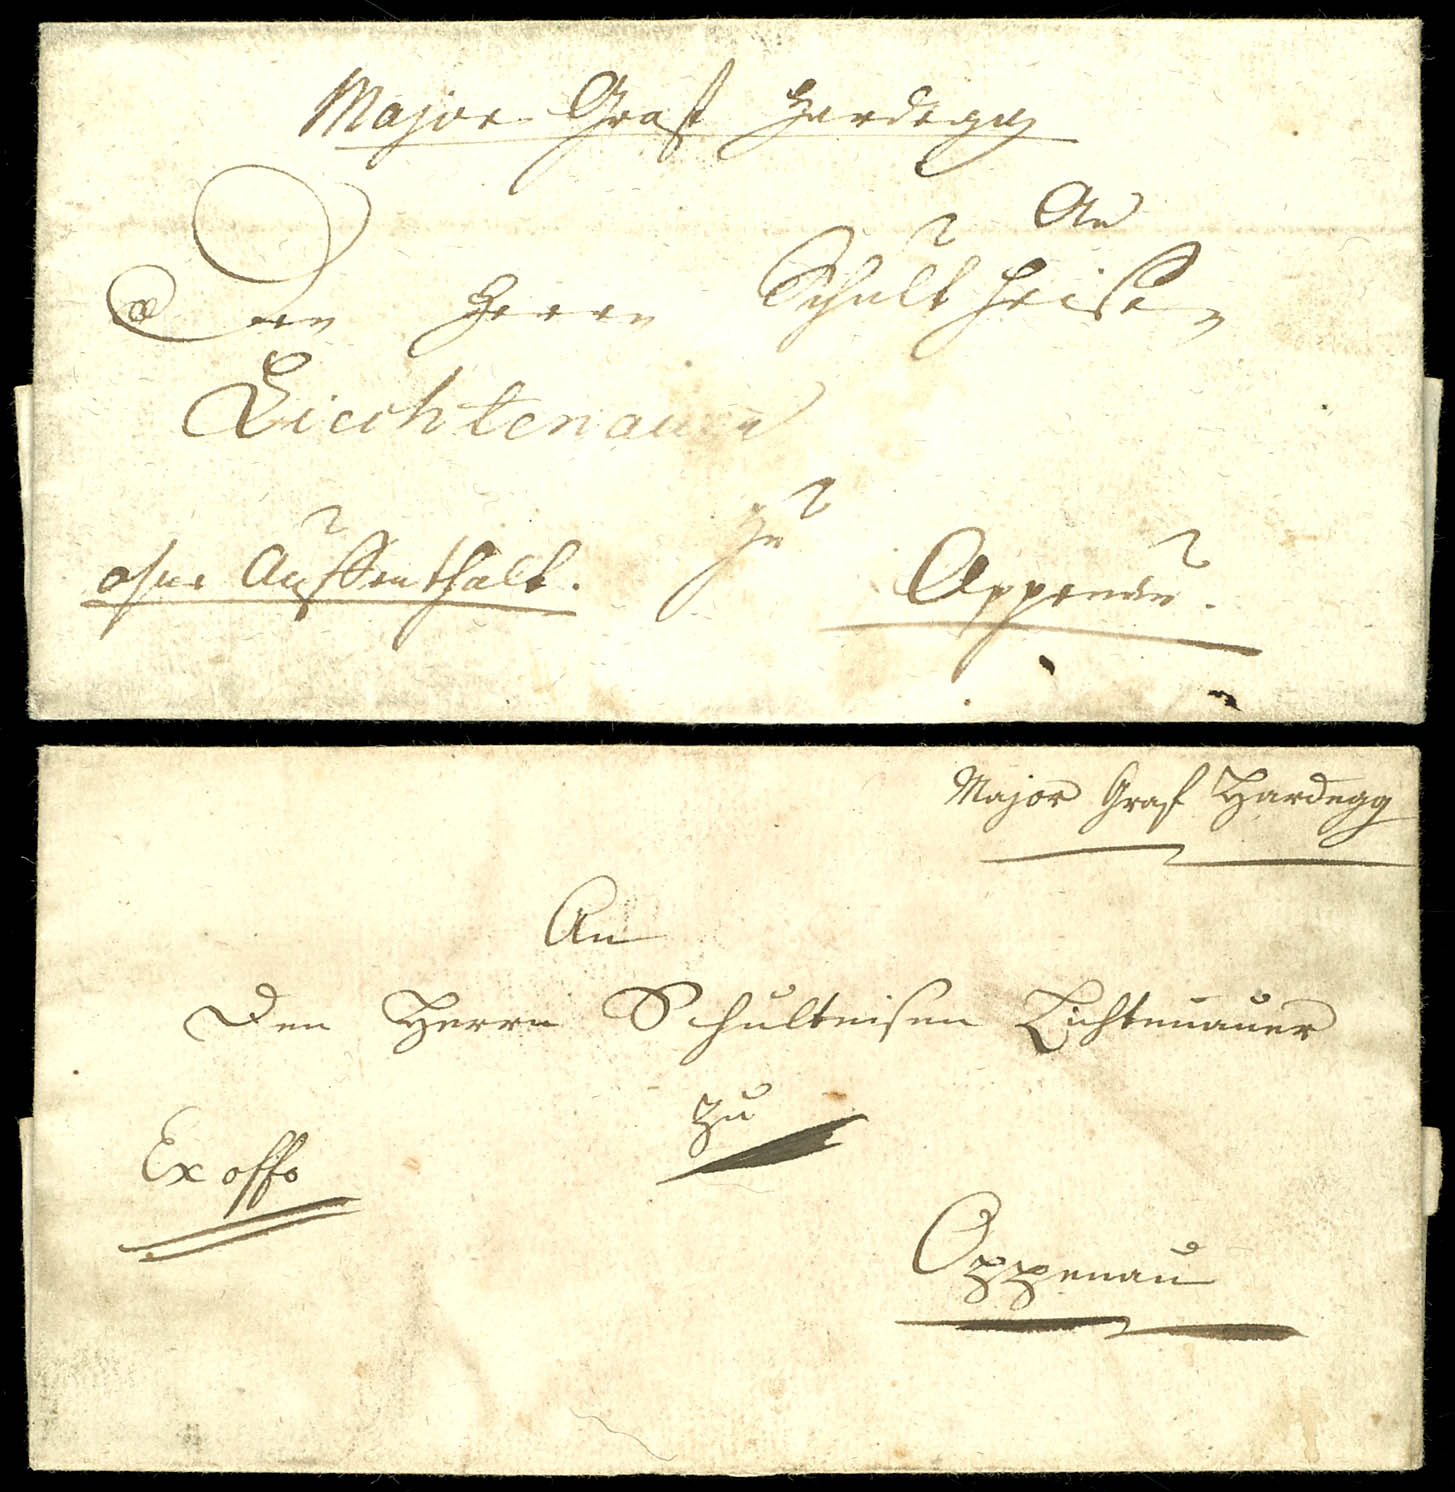 Major Graff Hardegg
An
Den Herrn Schultheisen
Liechtenauer
zu
ohne Auffenthalt. Oppenau.
Major Graf Hardegg
An
Den Herrn Schulteisen Lichtenauer
zu
Ex offo
Oppenau